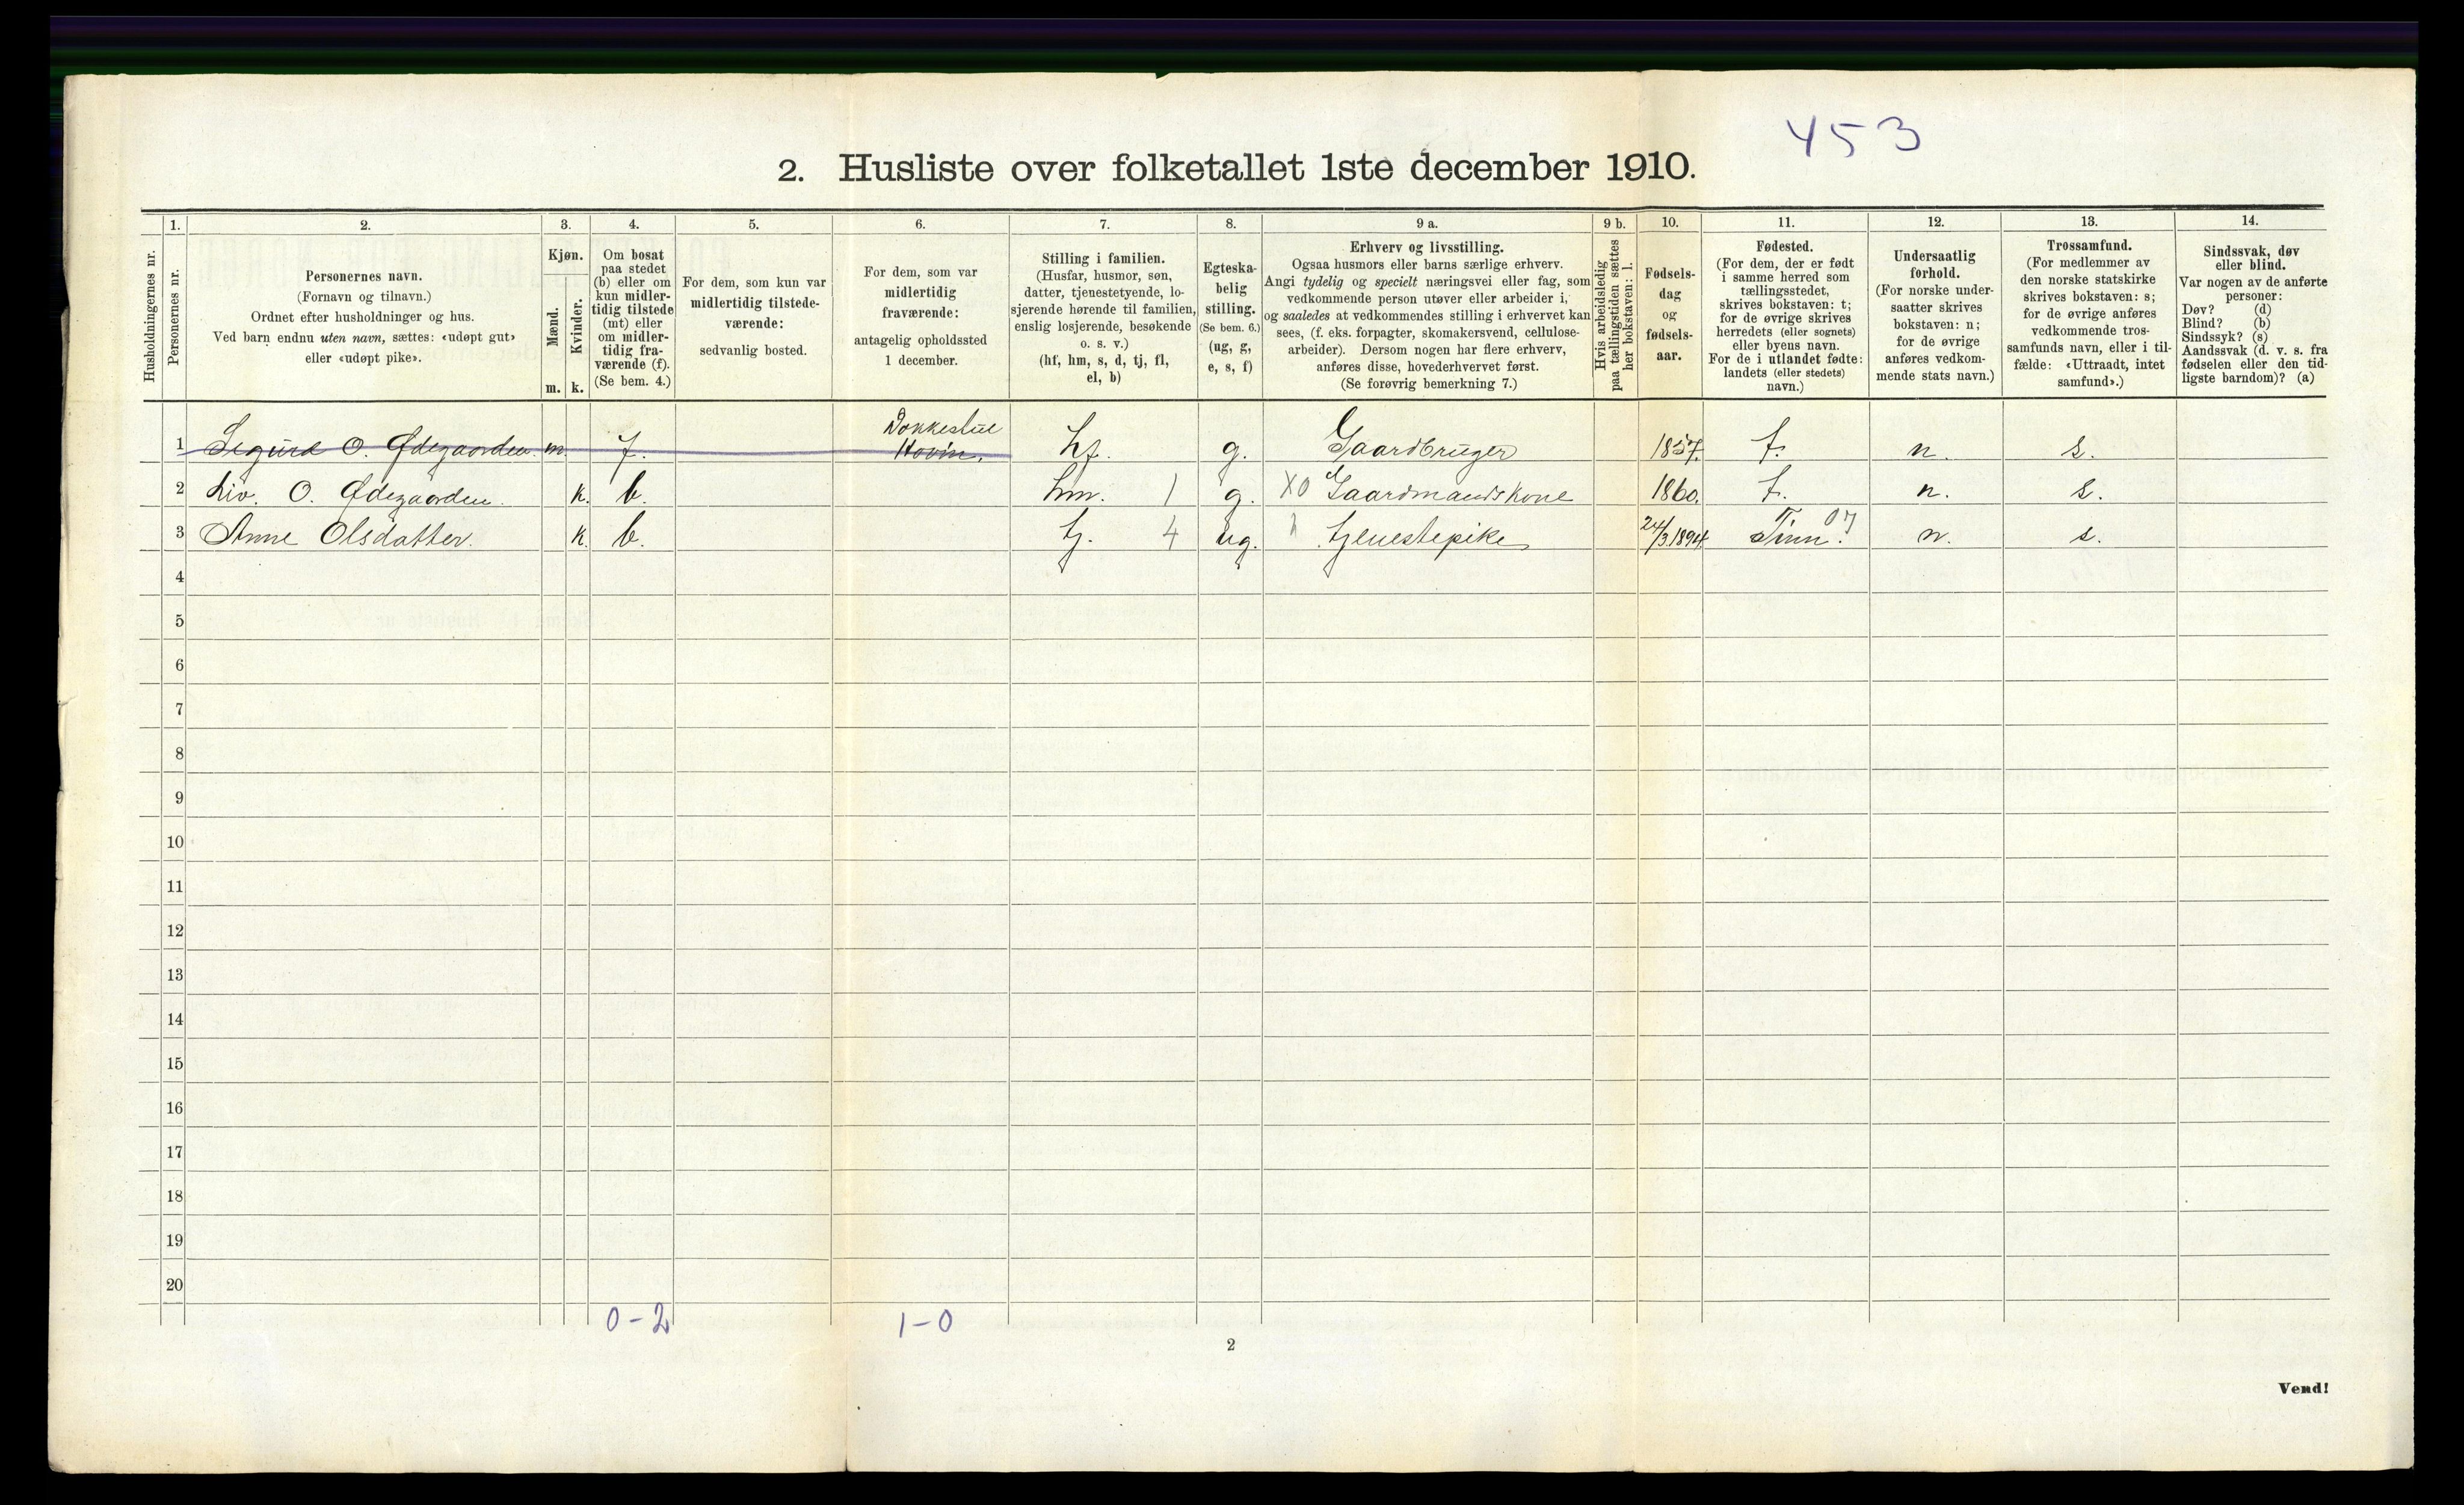 453
2. Husliste over folketallet 1ste december 1910.
1. 2. 3. 4. 5. 6. 7. 8. 9 a. 9 b. 10. 11. 12. 13. 14.
Husholdningernes nr.
Personernes nr.
Personernes navn.
(Fornavn og tilnavn.)
Ordnet efter husholdninger og hus.
Ved barn endnu uten navn, sættes: «udøpt gut»
eller «udøpt pike».
Kjøn.
Mænd.
Kvinder.
m. k.
Om bosat
paa stedet
(b) eller om
kun midler-
tidig tilstede
(mt) eller
om midler-
tidig fra-
værende (f).
(Se bem. 4.)
For dem, som kun var
midlertidig tilstede-
værende:
sedvanlig bosted.
For dem, som var
midlertidig
fraværende:
antagelig opholdssted
1 december.
Stilling i familien.
(Husfar, husmor, søn,
datter, tjenestetyende, lo-
sjerende hørende til familien,
enslig losjerende, besøkende
o. s. v.)
(hf, hm, s, d, tj, fl,
el, b)
Egteska-
belig
stilling.
(Se bem. 6.)
(ug, g,
e, s, f)
Erhverv og livsstilling.
Ogsaa husmors eller barns særlige erhverv.
Angi tydelig og specielt næringsvei eller fag, som
vedkommende person utøver eller arbeider i,
og saaledes at vedkommendes stilling i erhvervet kan
sees, (f. eks. forpagter, skomakersvend, cellulose-
arbeider). Dersom nogen har flere erhverv,
anføres disse, hovederhvervet først.
(Se forøvrig bemerkning 7.)
Hvis arbeidsledig
paa tællingstiden sættes
her bokstaven: l.
Fødsels-
dag
og
fødsels-
aar.
Fødested.
(For dem, der er født
i samme herred som
tællingsstedet,
skrives bokstaven: t;
for de øvrige skrives
herredets (eller sognets)
eller byens navn.
For de i utlandet fødte:
landets (eller stedets)
navn.)
Undersaatlig
forhold.
(For norske under-
saatter skrives
bokstaven: n;
for de øvrige
anføres vedkom-
mende stats navn.)
Trossamfund.
(For medlemmer av
den norske statskirke
skrives bokstaven: s;
for de øvrige anføres
vedkommende tros-
samfunds navn, eller i til-
fælde: «Uttraadt, intet
samfund».)
Sindssvak, døv
eller blind.
Var nogen av de anførte
personer:
Døv? (d)
Blind? (b)
Sindssyk? (s)
Aandssvak (d. v. s. fra
fødselen eller den tid-
ligste barndom)? (a)
Bokkestul
1 Segurd O. Ødegaarden. m. f. Hovin. hf. g. Gaardbruger 1857. t. n. s.
2 Liv. O. Ødegaarden. k. b. hm. 1 g. X0 Gaardmandskone 1860. t. n. s.
3 Anne Olsdatter. k. b. tj. 4 ug. tjenestepike 24/3 1894. Tinn. 07 n. s.
4
5
6
7
8
9
10
11
12
13
14
15
16
17
18
19
20
0-2 1-0
2
Vend!